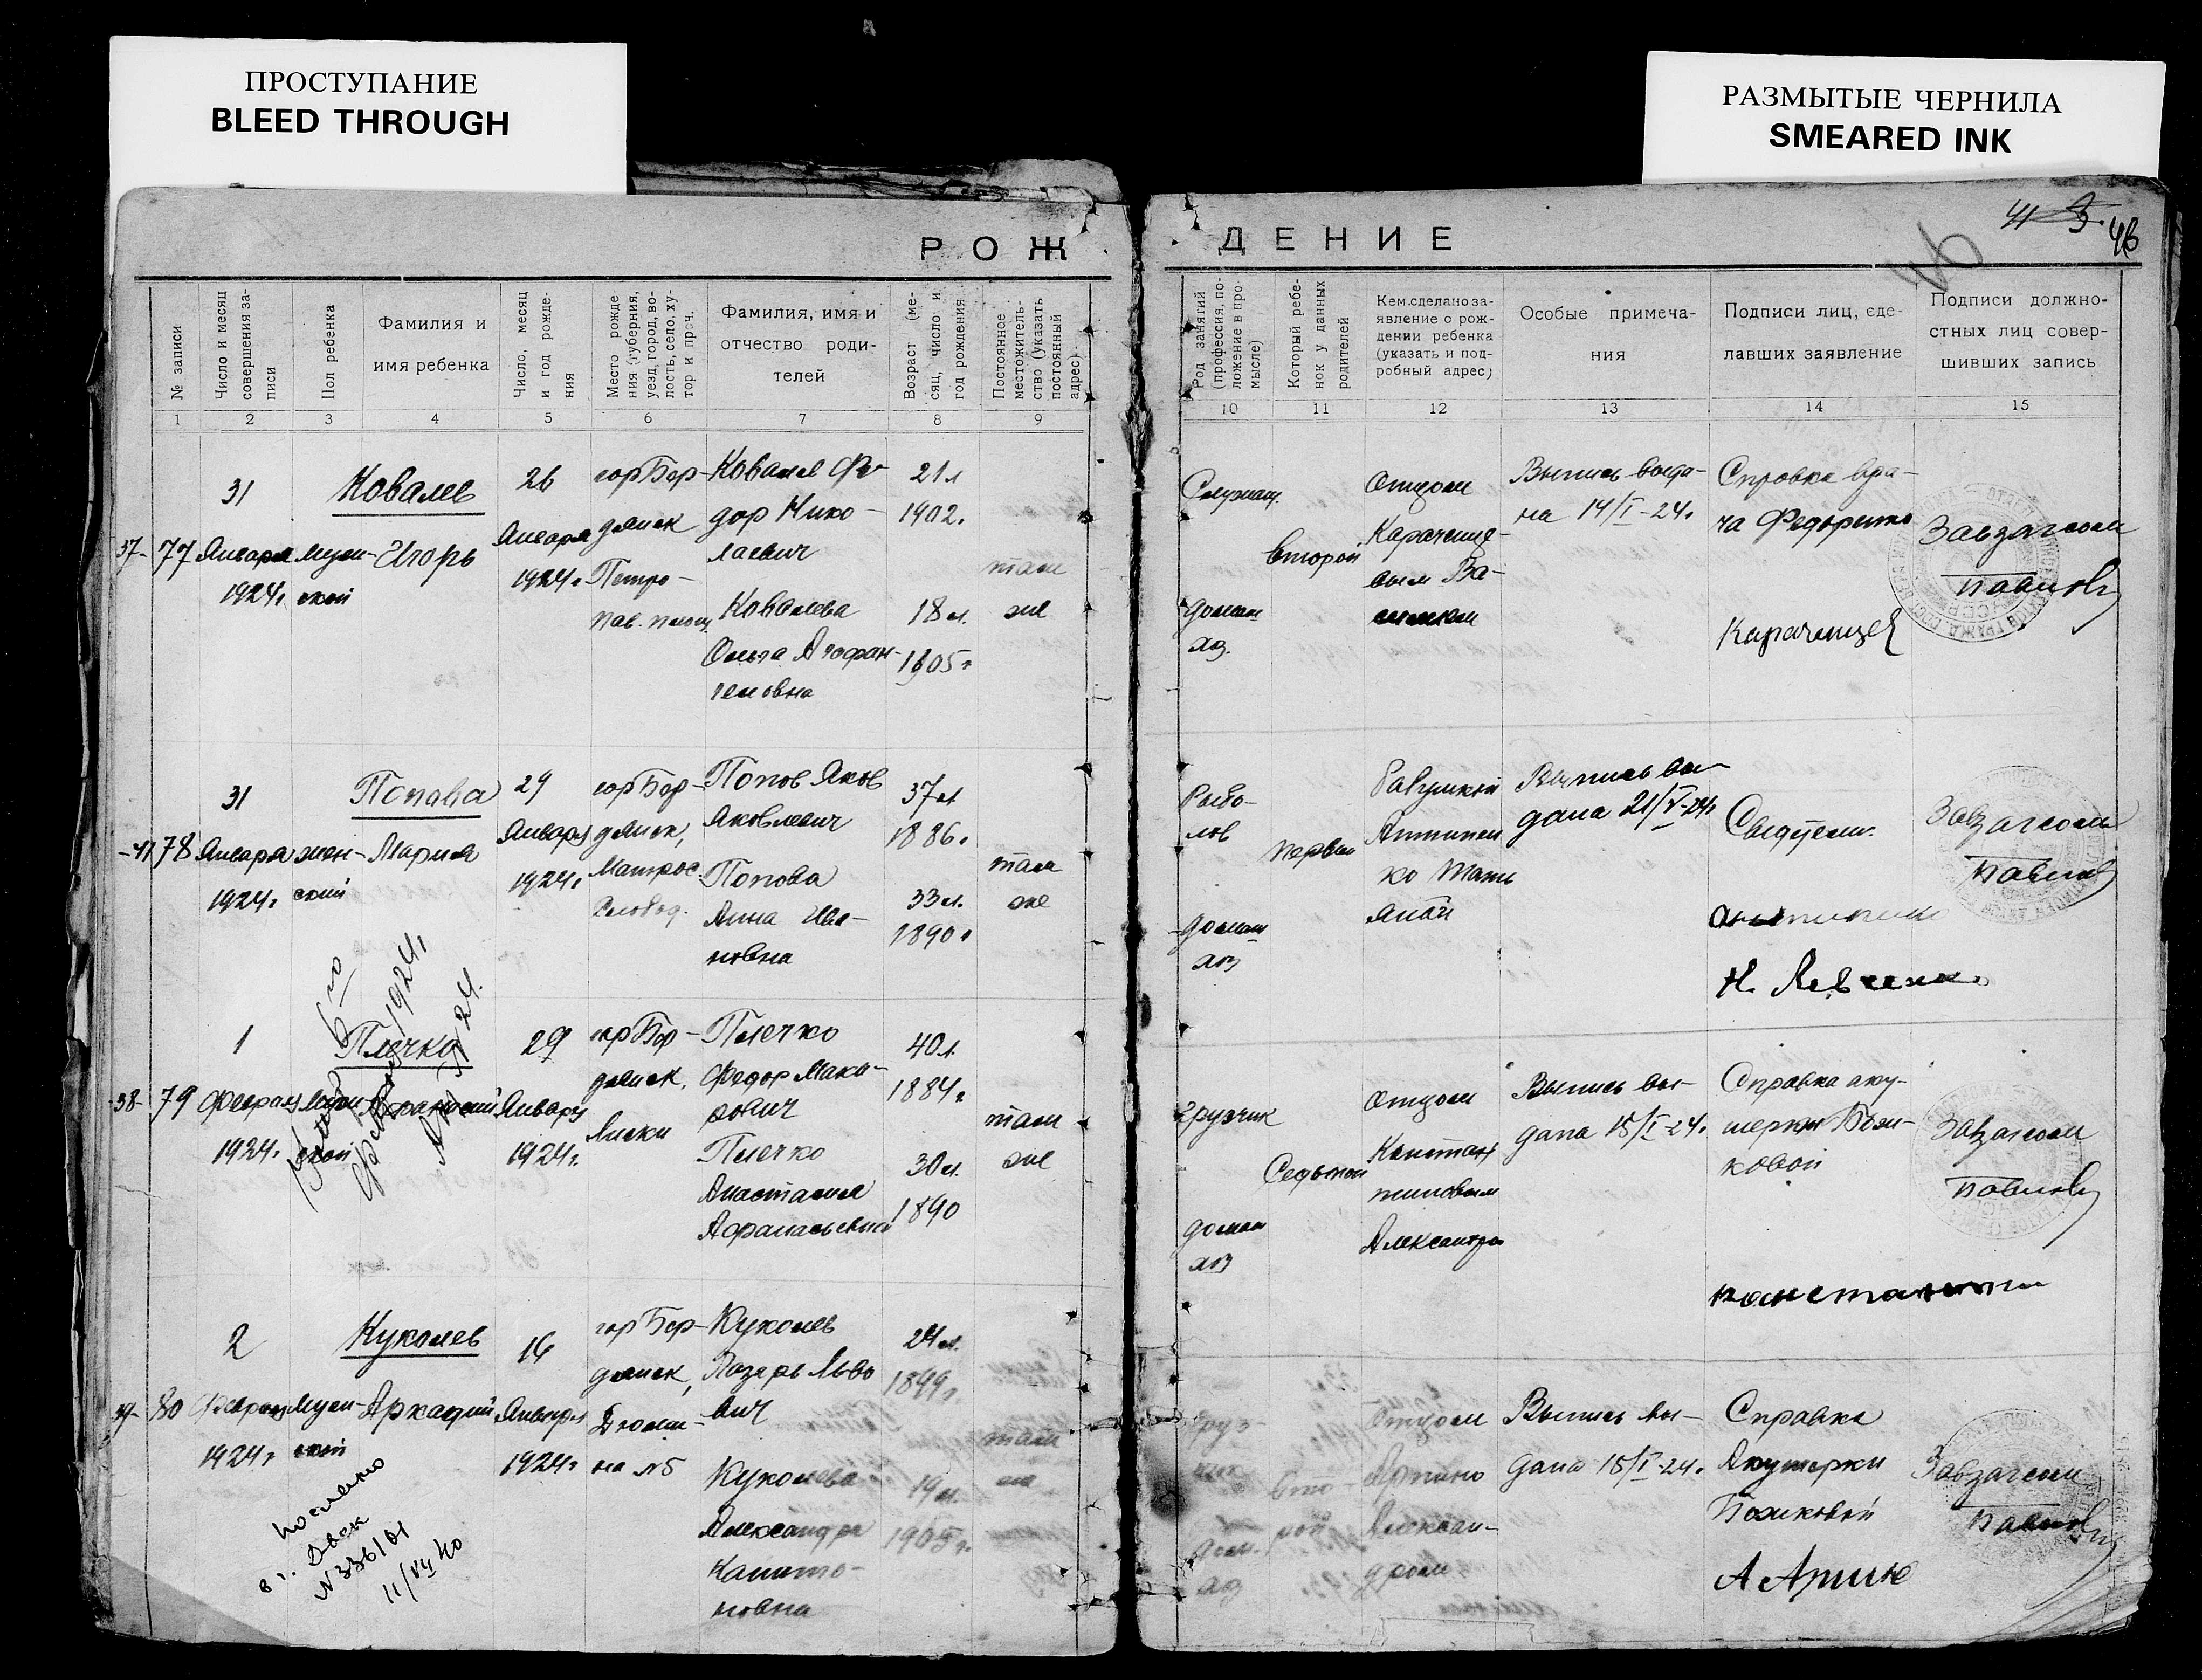 ПРОСТУПАНИЕ
BLEED THROUGH
РАЗМЫТЫЕ ЧЕРНИЛА
SMEARED INK
41
46
РОЖ
ДЕНИЕ
№ записи
Число и месяц
совершения за-
писи
Пол ребенка
Фамилия и
имя ребенка
Число, месяц
и год рожде-
ния
Место рожде
ния (губерния,
уезд, город, во-
лость, село, ху-
тор и проч.
Фамилия, имя и
отчество роди-
телей
Возраст (ме-
сяц, число и
год рождения
Постоянное
местожитель-
ство (указать
постоянный
адрес)
Род занятий
(профессия, по-
ложение в про-
мысле)
Который ребе-
нок у данных
родителей
Кем сделано за-
явление о рож-
дении ребенка
(указать и под-
робный адрес)
Особые примеча-
ния
Подписи лиц, сде-
лавших заявление
Подписи должно-
стных лиц совер-
шивших запись
1
2
3
4
5
6
7
8
9
10
11
12
13
14
15
37-
77
31
Января
1924г
муж-
ской
Ковалев
Игорь
26
Января
1924г
гор Бер-
дянск
Петро-
пав. площ.
Ковалев Фе-
дор Нико-
лаевич
Ковалева
Ольга
геловна
21 л
1902.
18 л.
1905г
там
же
Служащ.
домаш
хоз.
второй
отцом
Выпись выда-
на 14/I-24г
Справка вра-
ча
Завзагсом
Павлов
-41
78
31
Января
1924г
жен-
ский
Попова
Мария
29
Января
1924г
гор Бер-
дянск,
Матрос.
Слобод.
Попов Яков
Яковлевич
Попова
Анна Ива-
новна
37 л
1886г
33 л.
1890г
там
же
Рыбо-
лов
домаш
хоз
первый
Выпись вы-
дана 21/V-24г
Завзагсом
Павлов
38-
79
1
1924г
муж-
ской
Плечко
Афанасий
1924г
29
Января
1924г.
гор Бер-
дянск,
Лиски
Плечко
Федор Мака-
рович
Плечко
Анастасия
40 л.
1884г
30 л.
1890
там
же
грузчик
домаш
хоз
Седьмой
отцом
Констан
тиновым
Выпись вы-
дана 15/I-24г
Справка аку-
шерки Божи-
ковой
Завзагсом
Павлов
39-
80
2
1924г
муж-
ской
Куколев
Аркадий
16
Января
1924г
гор Бер-
дянск,
Дюми-
на №5
Куколев
Лазарь Льво
вич
Куколева
Александра
Капито-
новна
24 л.
1899г
19 л.
1905г.
там
же
груз-
чик
дом.
хоз
вто-
рой
отцом
Алексан-
дром
Выпись вы-
дана 15/I-24г
Справка
Акушерки
Божиковой
Завзагсом
Павлов
в г.
11/VII 40